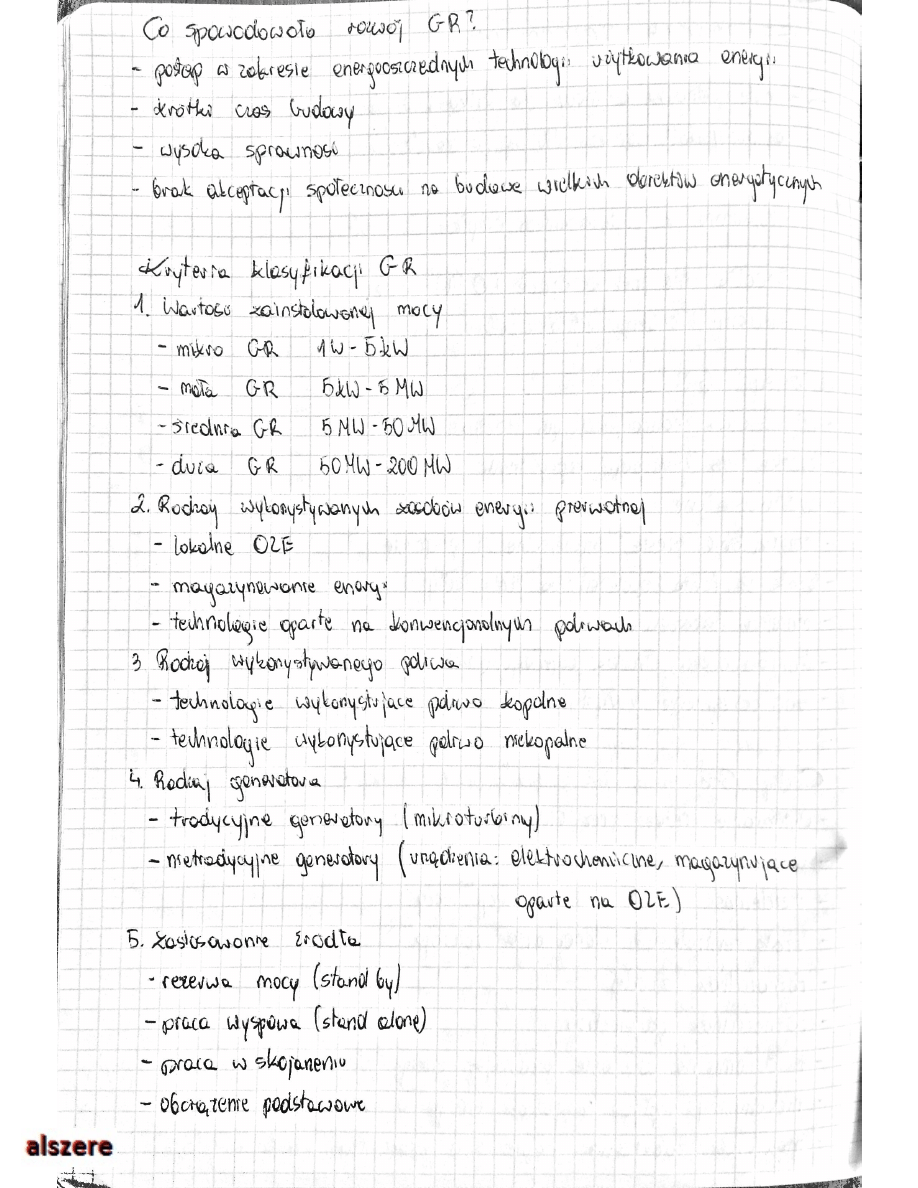 Co spowodowało rozwój GR?
- postęp w zakresie energooszczędnych technologii użytkowania energii
- krótki czas budowy
- wysoka sprawność
- brak akceptacji społeczności na budowę wielkich obiektów energetycznych
Kryteria klasyfikacji GR
1. Wartość zainstalowanej mocy
- mikro GR 1W - 5kW
- mała GR 5kW - 5 MW
- średnia GR 5 MW - 50 MW
- duża GR 50MW - 200 MW
2. Rodzaj wykorzystywanych zasobów energii pierwotnej
- lokalne OZE
- magazynowanie energii
- technologie oparte na konwencjonalnych paliwach
3 Rodzaj wykorzystywanego paliwa
- technologie wykorzystujące paliwo kopalne
- technologie wykorzystujące paliwo niekopalne
4. Rodzaj generatora
- tradycyjne generatory (mikroturbiny)
- nietradycyjne generatory (urządzenia: elektrochemiczne, magazynujące
oparte na OZE)
5. Zastosowanie źródła
- rezerwa mocy (stand by)
- praca wyspowa (stand alone)
- praca w skojarzeniu
- obciążenie podstawowe
alszere